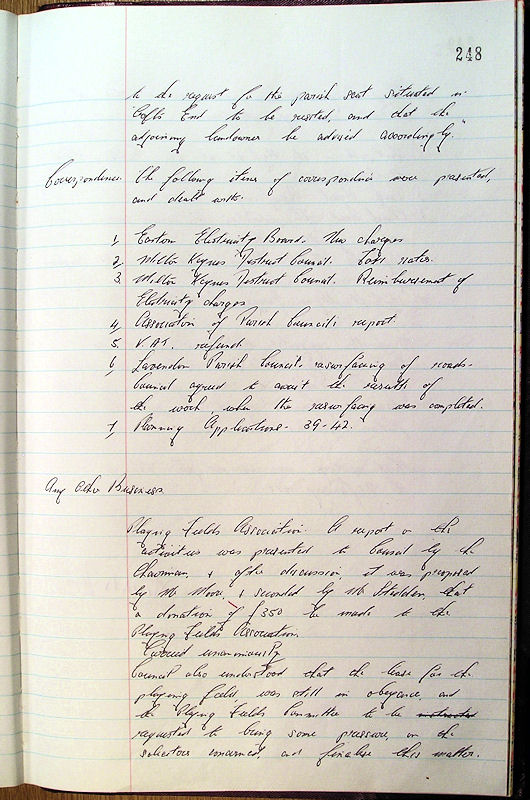 248
to the request for the parish seat situated in
End to be resited, and that the
adjoining landowner be advised accordingly."
Correspondence. The following items of correspondence were presented,
and dealt with.
1, Eastern Electricity Board. New charges
2, Milton Keynes District Council. rates.
3. Milton Keynes District Council. Reimbursement of
Electricity charges
4, Association of Parish Councils report.
5 V.A.T. refund
6, Lavendon Parish Council. resurfacing of roads.
Council agreed to await the results of
the work, when the resurfacing was completed.
7, Planning Applications - 39-42.
Any other Business.
Playing Fields Association. A report on the
activities was presented to Council by the
Chairman, & after discussion, it was proposed
by Mr & seconded by Mr that
a donation of £350 be made to the
Playing Fields Association.
Carried unanimously
Council also understood that the lease for the
playing field, was still in obeyance, and
the Playing Fields Committee to be instructed
requested to bring some pressure, on the
solicitors concerned, and finalise this matter.